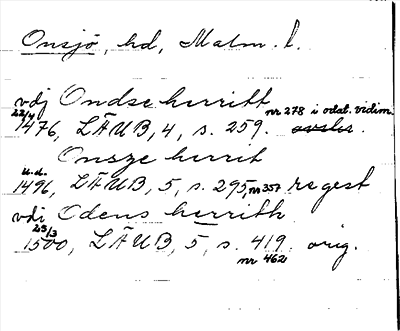 Onsjö, hd, Malm. l.
vdj Ondse herritt
22/4 nr 278 i odat. vidim.
1476, LÄUB, 4, s. 259.
Onsze herrit
u.d.
1496, LÄUB, 5, s. 295, nr 357 regest
vdi Odens herrith
23/3
1500, LÄUB, 5, s. 419. orig.
nr 462